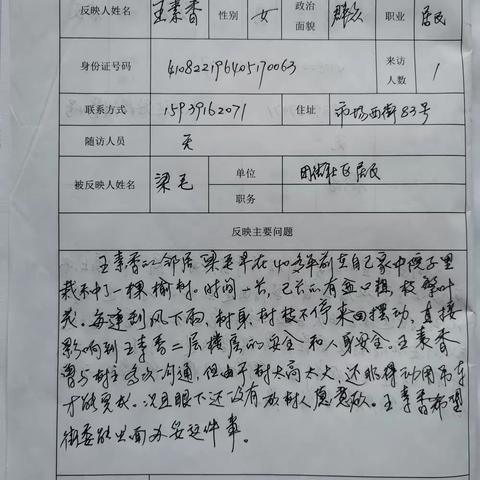 反映人姓名 王素香 性别 女 政治面貌 群众 职业 居民
身份证号码 410822196405170063 来访人数 1
联系方式 15939162071 住址 市场西街83号
随访人员 无
被反映人姓名 梁毛 单位 居民
职务
反映主要问题
王素香的邻居梁毛早在40多年前在自己家中院子里
栽种了一棵榆树。时间一长,已长的有盆口粗,枝繁叶
茂。每逢刮风下雨,树身、树枝不停来回摆动,直接
影响到王素香二层楼房的安全和人身安全。王素香
曾与树主多次沟通,但由于树太高太大,还非得动用吊车
才能完成。况且眼下还没有放树人愿意放。王素香希望
街委能出面办妥这件事。